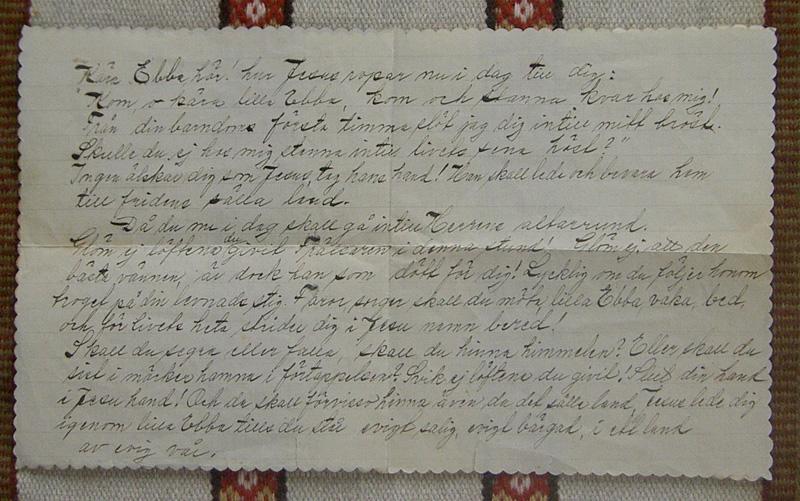 Kära Ebba hör! hur Jesus ropar nu i dag till dig:
"Kom, o kära lilla Ebba, kom och stanna kvar hos mig!
Från din barndoms första timma slöt jag dig intill mitt bröst.
Skulle du ej hos mig stanna intill livets sena höst?"
Ingen älskar dig som Jesus, tag hans hand! Han skall leda och bevara hem
till fridens sälla land.
Då du nu i dag skall gå intill Herrens altarrund.
Glöm ej löftena du givit Frälsaren i denna stund! Glöm ej att den
bästa vännen, är dock han som dött för dig! Lycklig om du följer honom
troget på din levnads stig. Faror, sorger skall du möta, lilla Ebba, vaka, bed,
och för livets heta strider dig i Jesu namn bered!
Skall du segra eller falla, skall du hinna himmelen? Eller skall du
sist i mörker hamna i förtappelsen? Svik ej löftena du givit! Slut din hand
i Jesu hand! Och du skall förvisso hinna även du det sälla land, Jesus lede dig
igenom lilla Ebba tills du står evigt salig, evigt bärgad, i ett land
av evig vår.